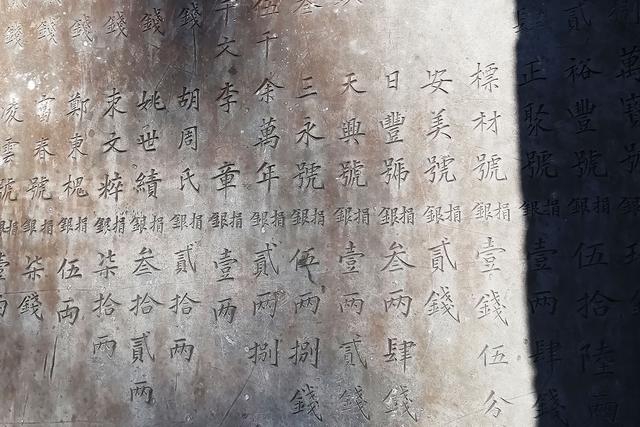 貳裕豐號捐銀伍拾陸兩
正聚號捐銀壹兩肆錢
標材號捐銀壹錢伍分
安美號捐銀貳錢
日豐號捐銀叁兩肆錢
天興號捐銀壹兩貳錢
叁三永號捐銀伍兩捌錢
伍千余萬年捐銀貳兩捌
文李童捐銀壹兩
錢胡周氏捐銀貳拾兩
錢姚世績捐銀叁拾貳兩
錢束文粹捐銀柒拾兩
錢鄭東槐捐銀伍兩
錢富春號捐銀柒錢
錢凌雲號捐銀壹兩